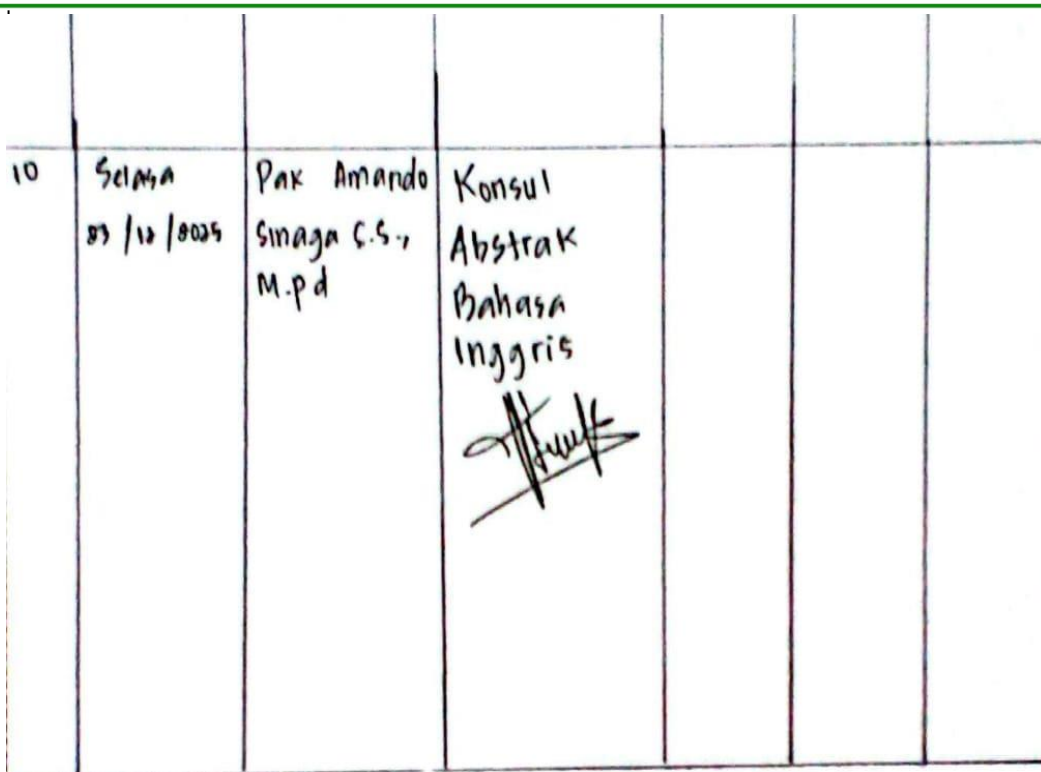 10
Selasa
/12/2025
Pak Amando
Sinaga S.S.,
M.pd
Konsul
Abstrak
Bahasa
Inggris